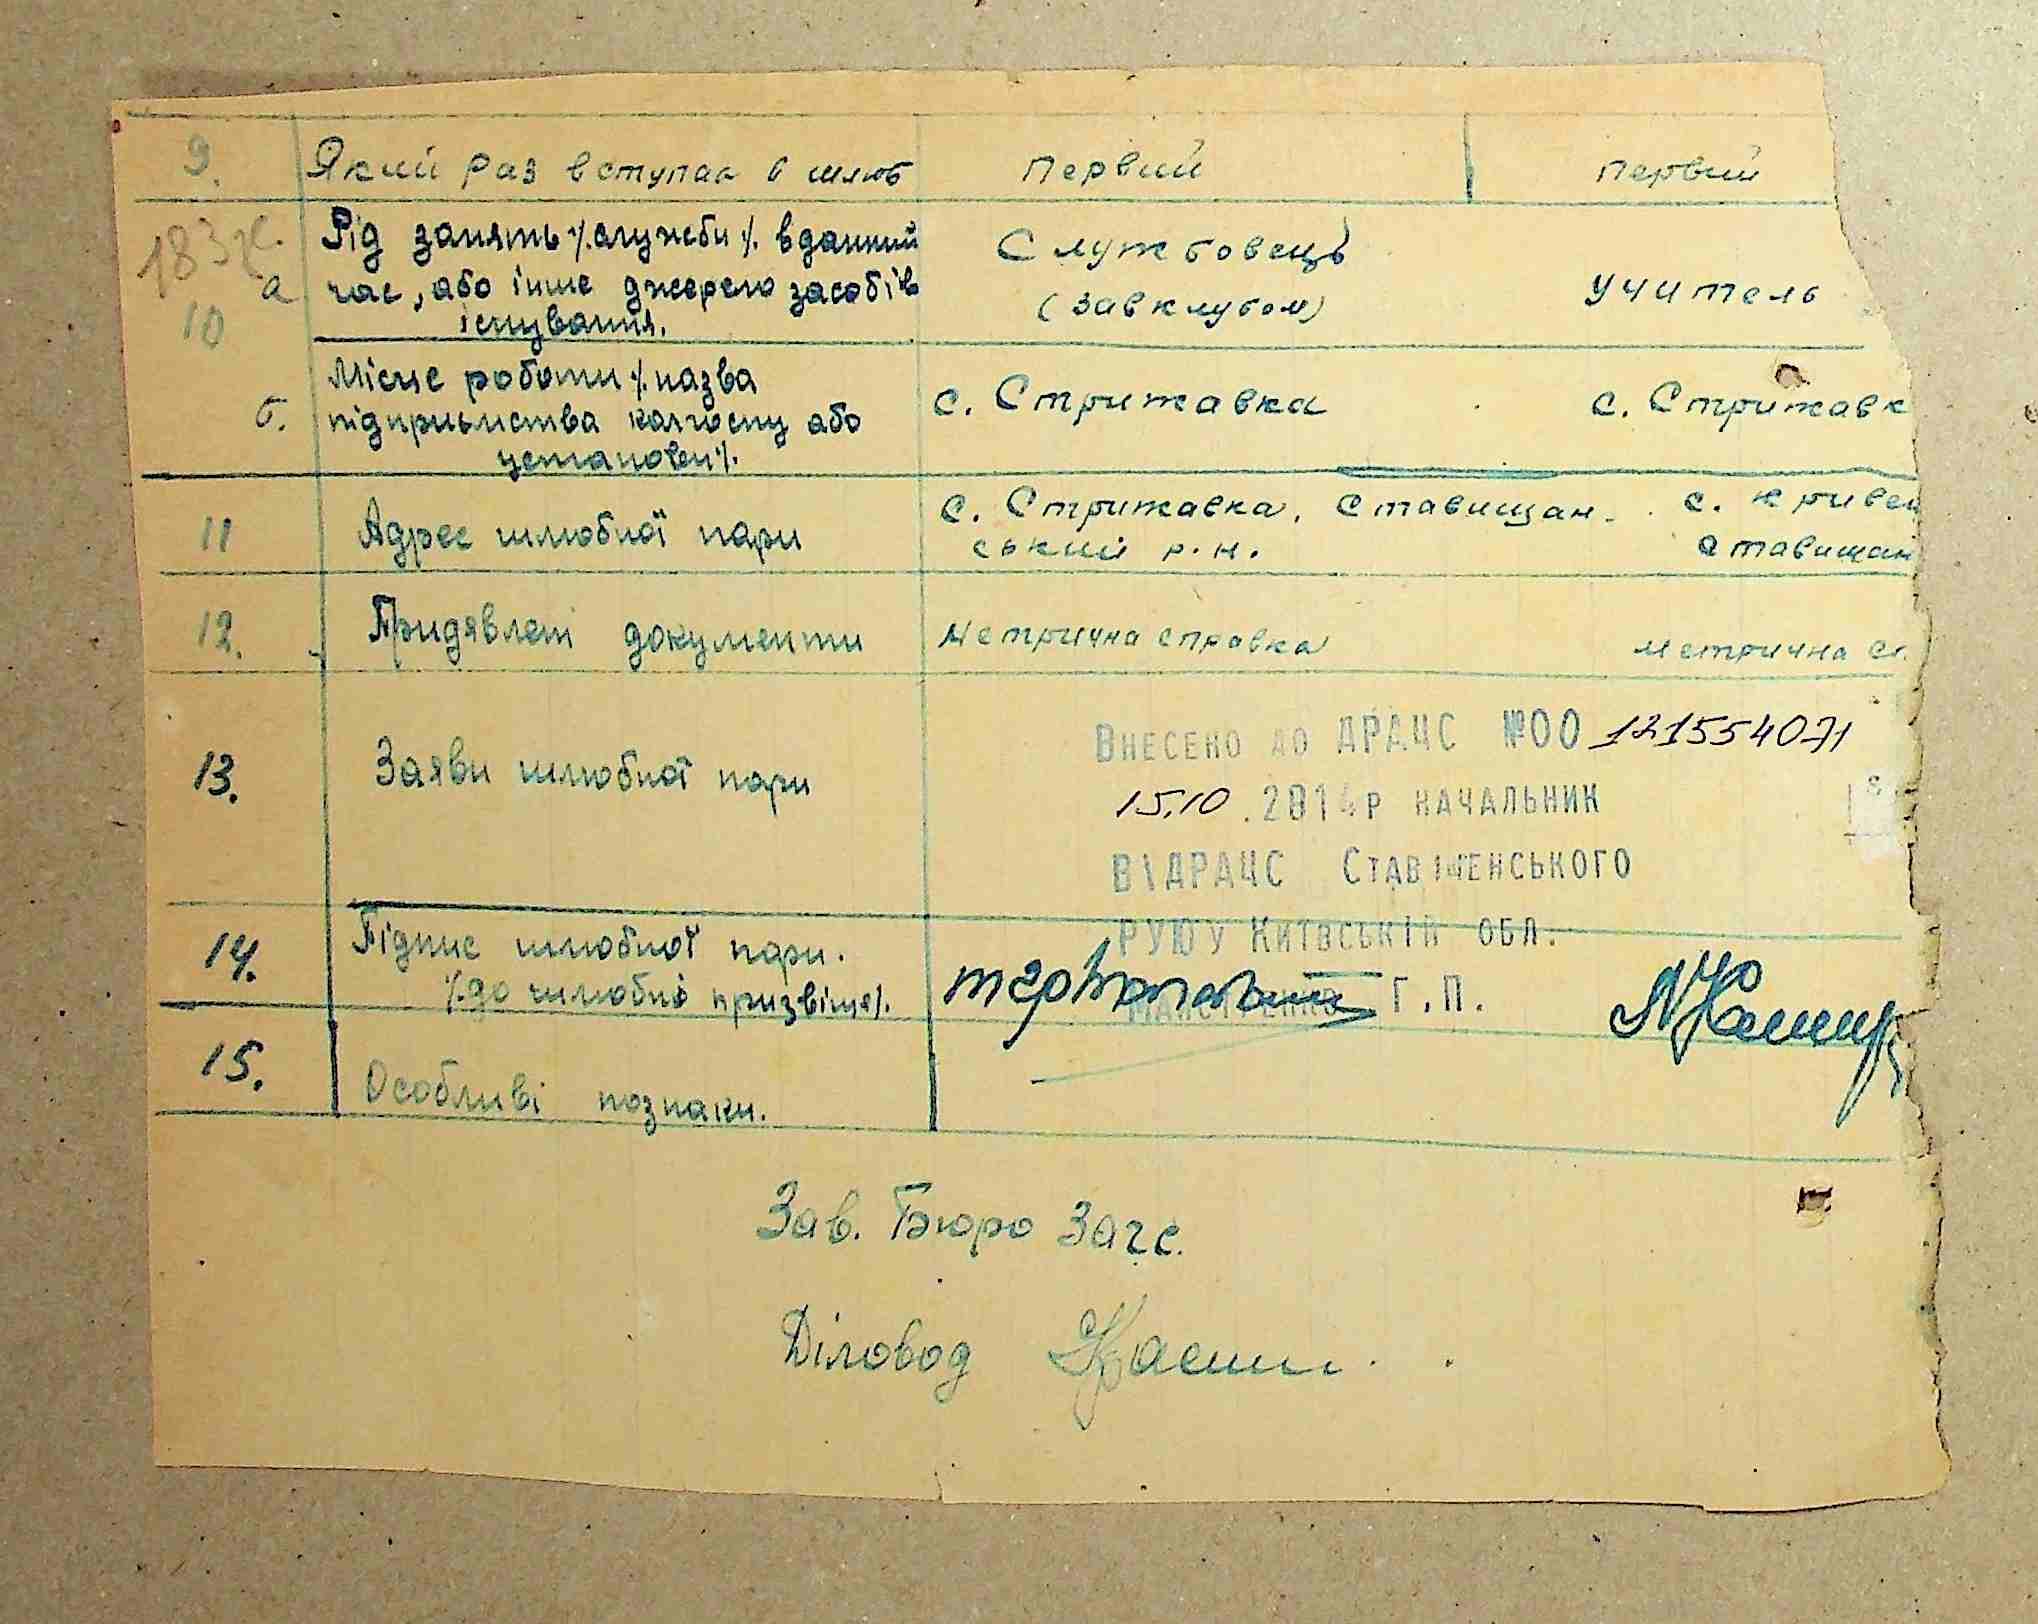 9. Який раз вступак в шлюб первий первий
183 ж.
10 а Рід занять %служби% вданний
час, або інше джерело засобів
існування.
Службовець
(завклубом)
учитель
б. Місце роботи %назва
підприьмства колгоспу або
установи%.
с. Стрижавка с. Стрижавк
11 Адрес шлюбної пари
с. Стрижавка, Ставищан-
ський р.н.
с. Кривец
Ставищан
12. Придявлені документи Метрична справка метрична с
13. Заяви шлюбної пари
Внесено до ДРАЦС №00 121554071
15.10.2014р начальник
ВІДРАЦС Ставищенського
РУЮ у Київській обл.
Г.П.
14. Підпис шлюбної пари.
%до шлюбні призвіща%.
15. Особливі познаки.
Зав. Бюро Загс.
Діловод